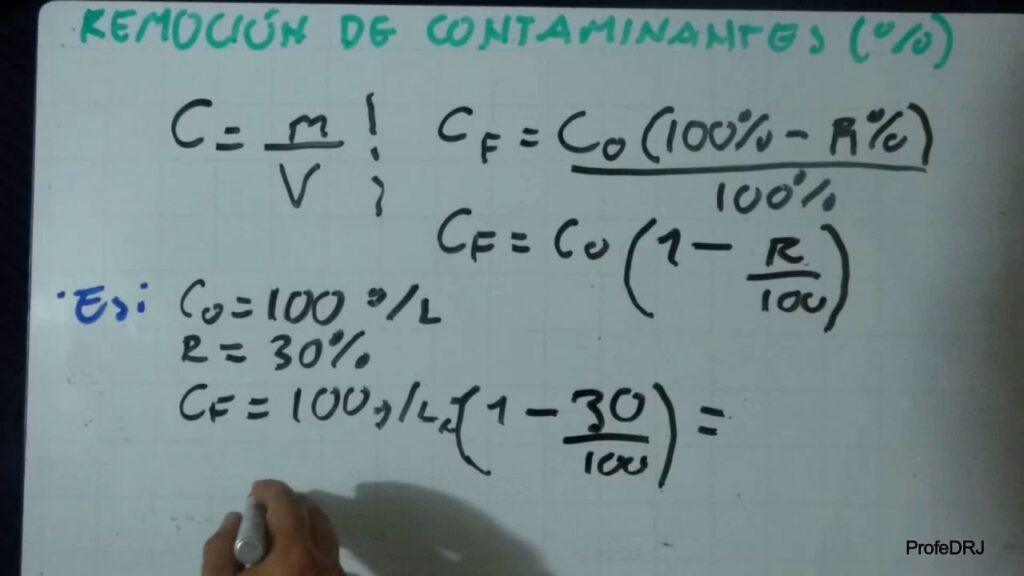 REMOCIÓN DE CONTAMINANTES (%)
C = m / V ; CF = Co (100% - R%) / 100%
CF = Co (1 - R/100)
Ej: Co = 100 g/L
R = 30%
CF = 100 g/L (1 - 30/100) =
ProfeDRJ